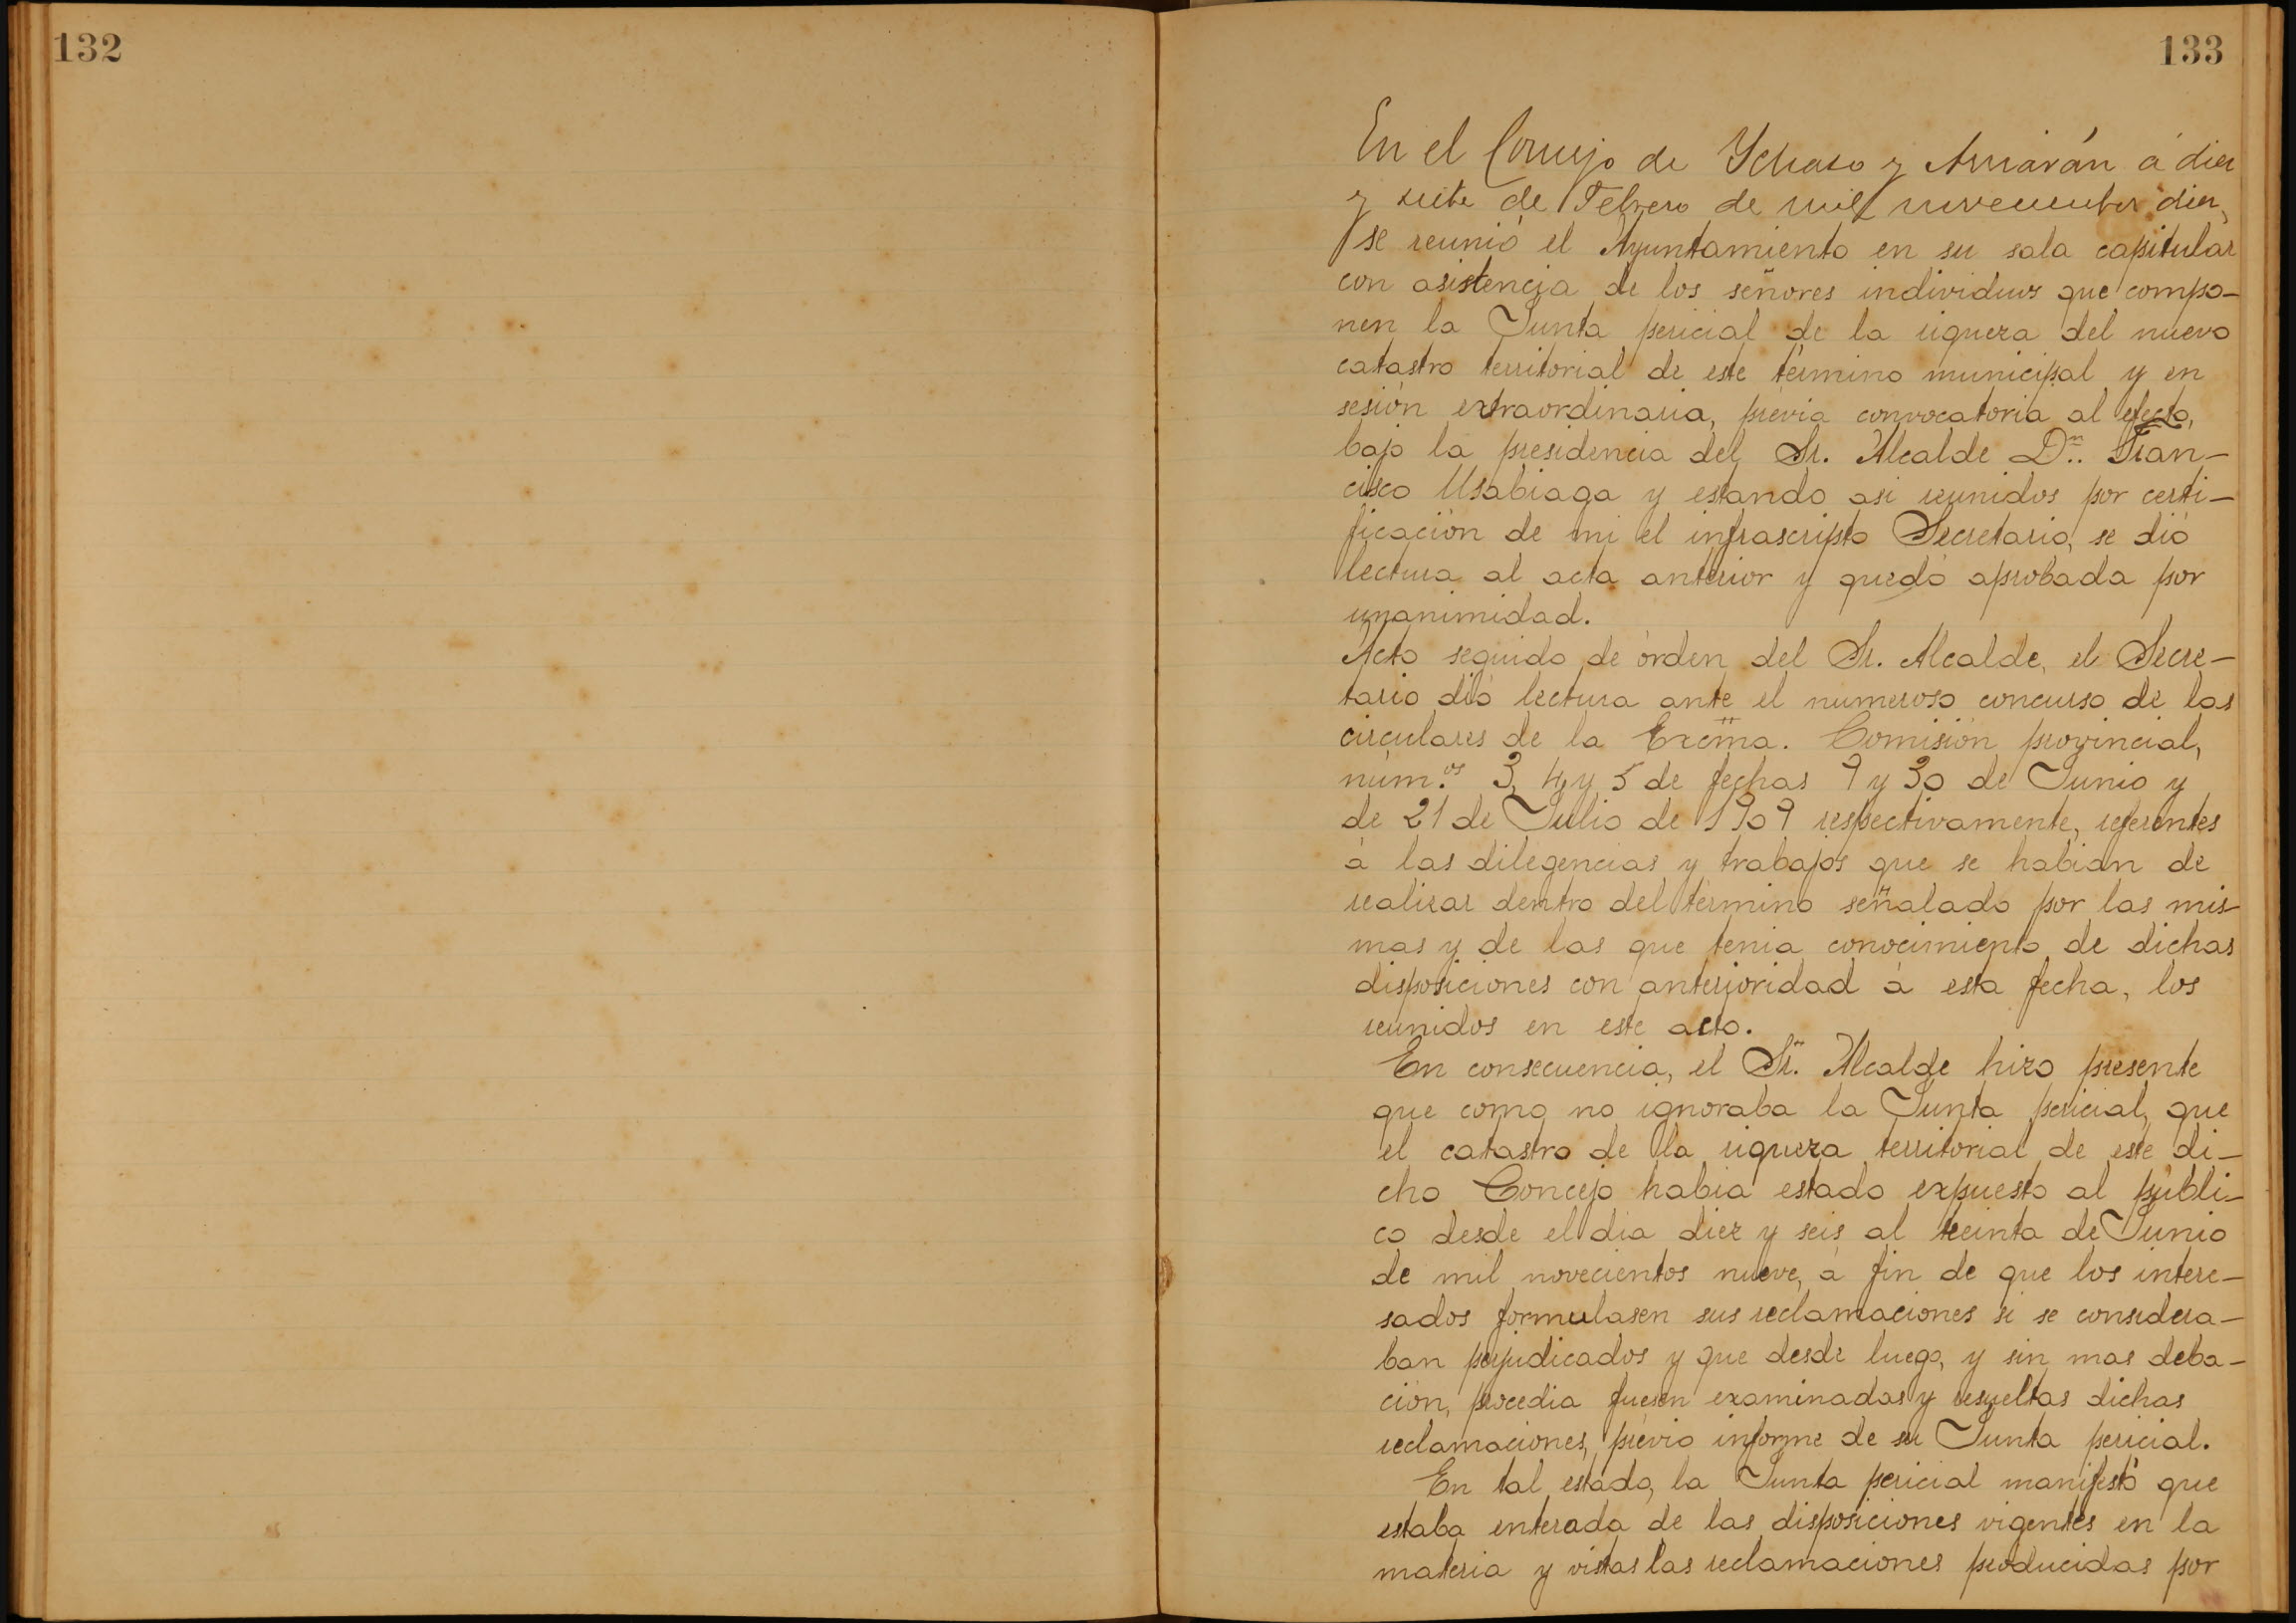 132
133
En el Concejo de Ychaso y Arriarán á diez
y siete de Febrero de mil novecientos diez,
se reunió el Ayuntamiento en su sala capitular
con asistencia de los señores individuos que compo-
nen la Junta pericial de la riqueza del nuevo
catastro territorial de este término municipal y en
sesión extraordinaria, previa convocatoria al efecto,
bajo la presidencia del Sr. Alcalde Dn. Fran-
cisco Usabiaga y estando asi reunidos por certi-
ficación de mi el infrascripto Secretario, se dió
lectura al acta anterior y quedó aprobada por
unanimidad.
Acto seguido de órden del Sr. Alcalde, el Secre-
tario dió lectura ante el numeroso concurso de las
circulares de la Excma. Comisión provincial,
núm.os 3, 4, y 5 de fechas 9 y 30 de Junio y
de 21 de Julio de 1909 respectivamente, referentes
á las diligencias y trabajos que se habian de
realizar dentro del término señalado por las mis-
mas y de las que tenia conocimiento de dichas
disposiciones con anterioridad á esta fecha, los
reunidos en este acto.
En consecuencia, el Sr. Alcalde hizo presente
que como no ignoraba la Junta pericial, que
el catastro de la riqueza territorial de este di-
cho Concejo habia estado expuesto al públi-
co desde el dia diez y seis al treinta de Junio
de mil novecientos nueve, á fin de que los intere-
sados formulasen sus reclamaciones si se considera-
ban perjudicados y que desde luego, y sin mas deba-
ción, procedia fuesen examinadas y resueltas dichas
reclamaciones, prévio informe de su Junta pericial.
En tal estado, la Junta pericial manifestó que
estaba enterada de las disposiciones vigentes en la
materia y vistas las reclamaciones producidas por